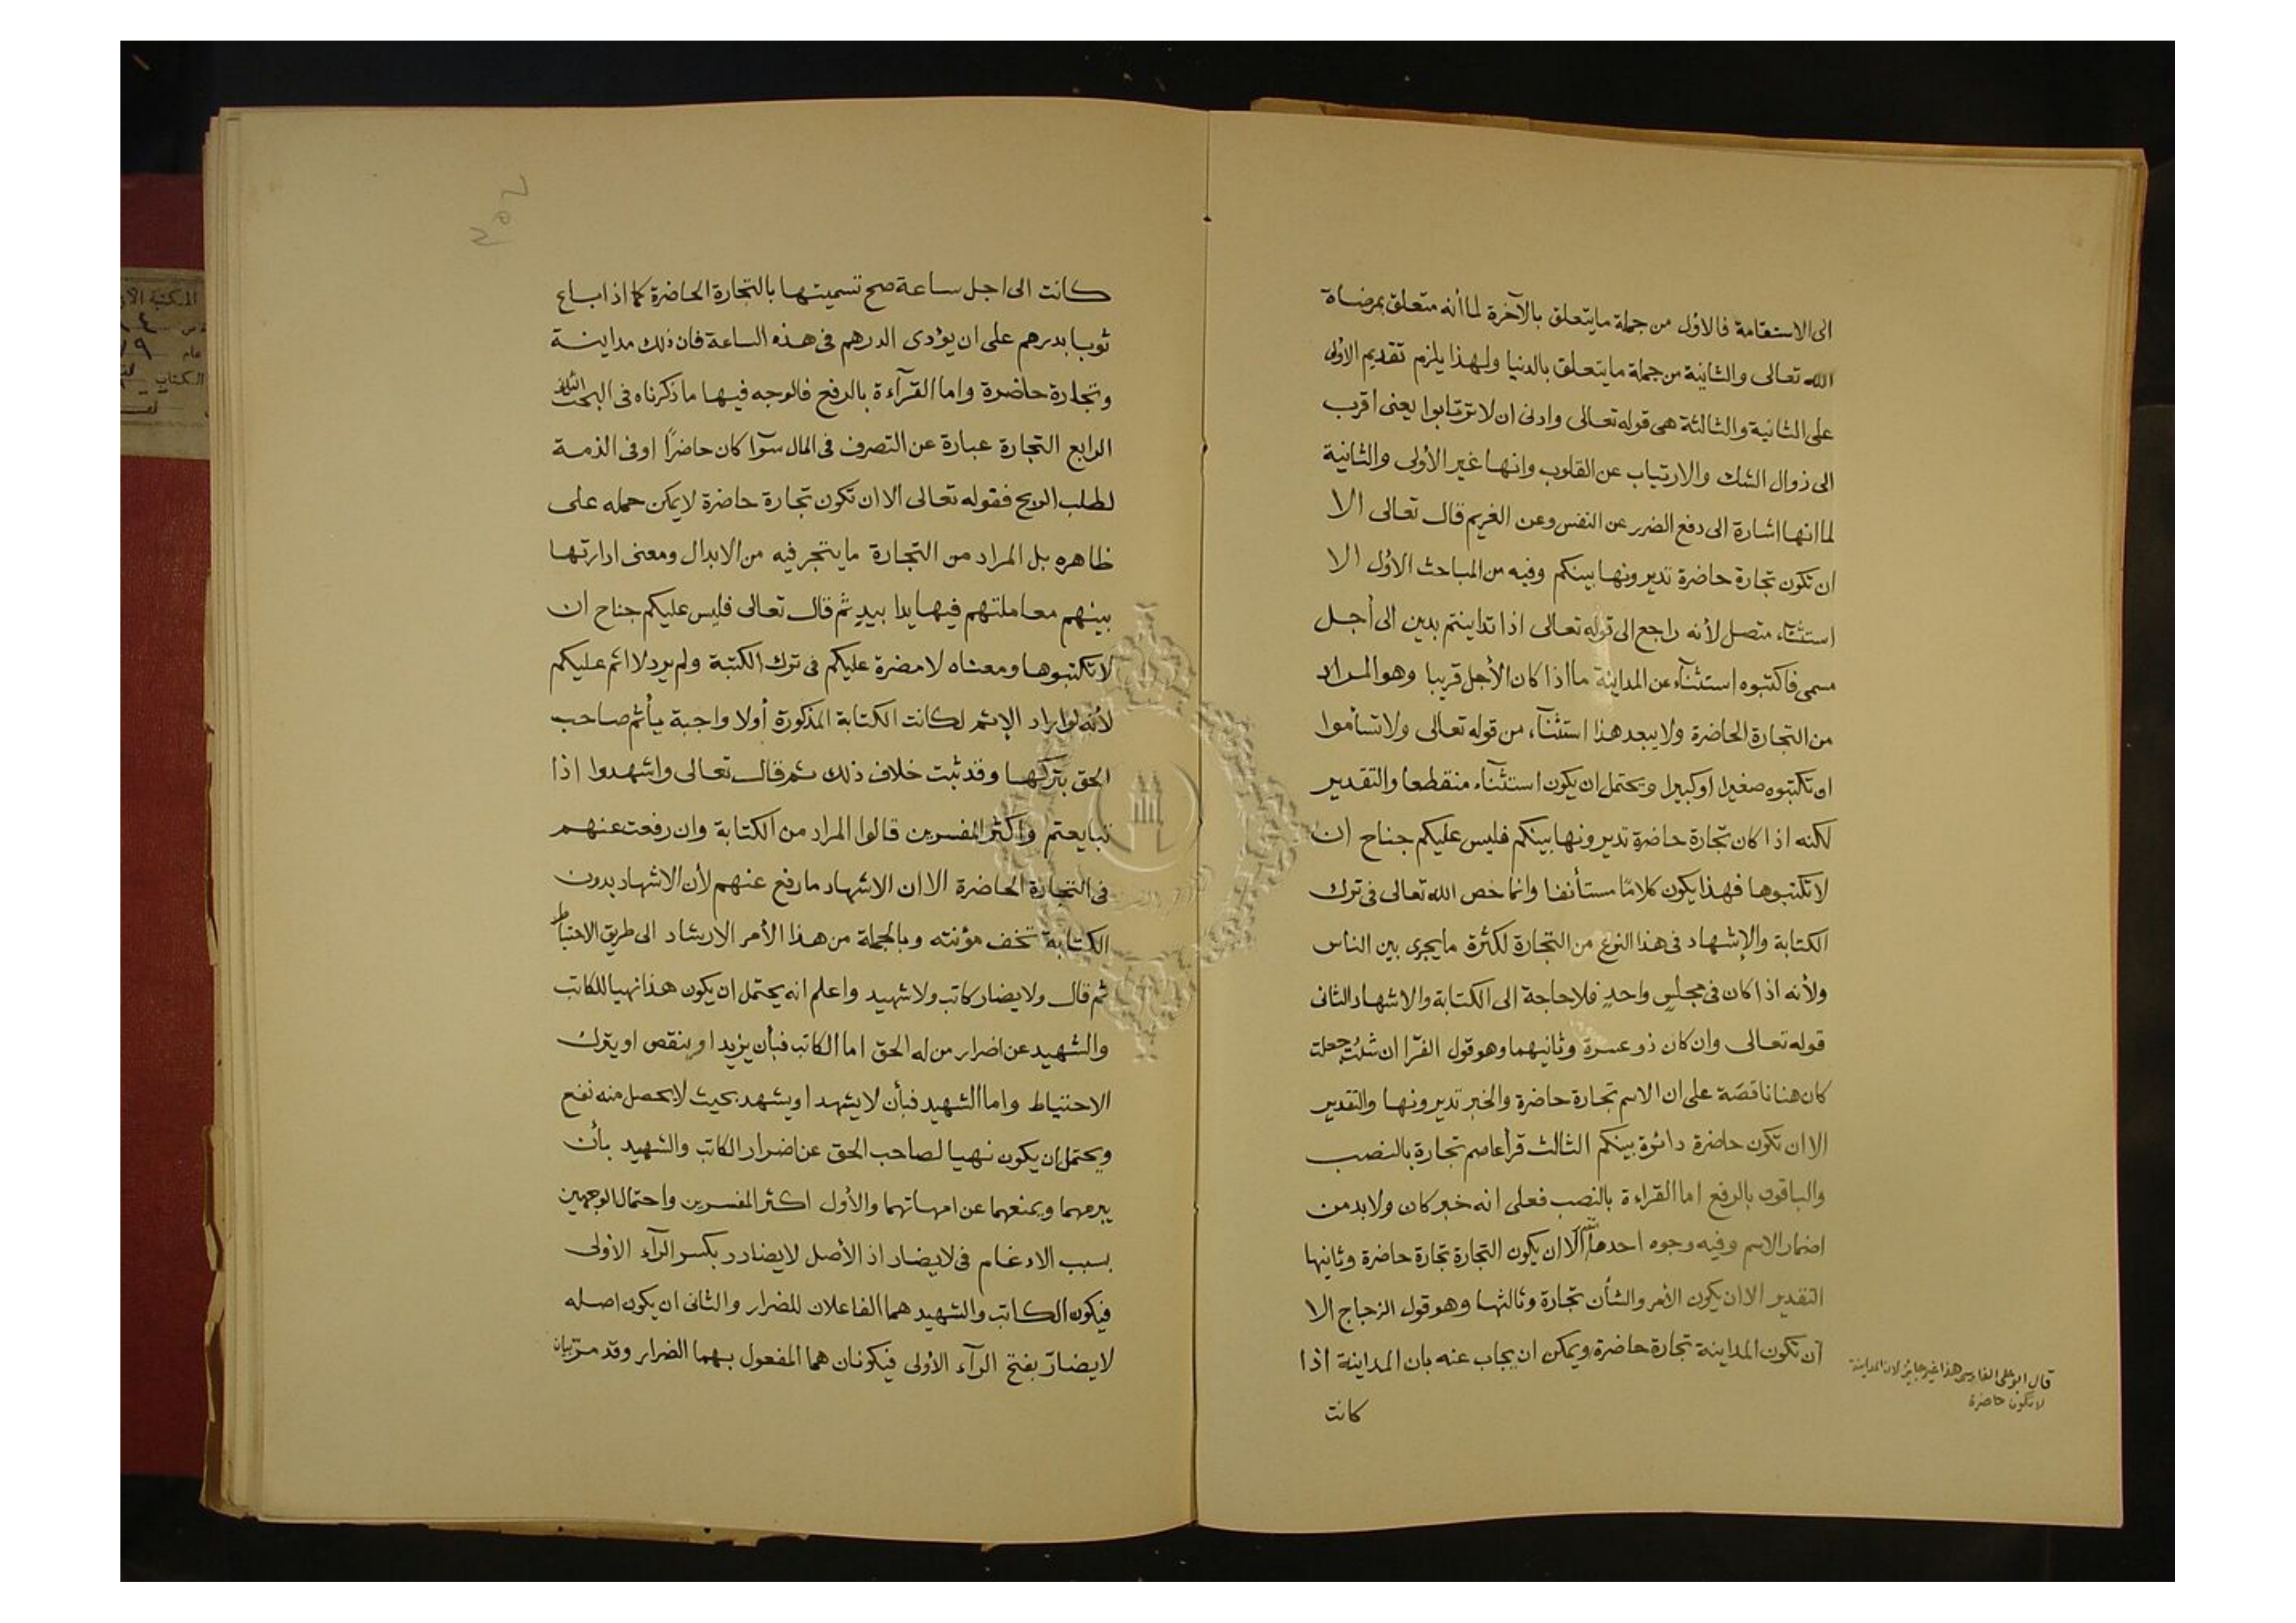 الى الاستقامة فالاول من جملة ما يتعلق بالآخرة لما أنه متعلق بمرضاة
الله تعالى والثانية من جملة ما يتعلق بالدنيا ولهذا يلزم تقديم الاولى
على الثانية والثالثة هى قوله تعالى وادنى ان لا ترتابوا يعنى اقرب
الى زوال الشك والارتياب عن القلوب وانها غير الأولى والثانية
لما انها اشارة الى دفع الضرر عن النفس وعن الغريم قال تعالى الا
ان تكون تجارة حاضرة تديرونها بينكم وفيه من المباحث الاول الا
استثناء متصل لأنه راجع الى قوله تعالى اذا تداينتم بدين الى أجل
مسمى فاكتبوه استثناء عن المداينة ما اذا كان الأجل قريبا وهو المراد
من التجارة الحاضرة ولا يبعد هذا استثناء من قوله تعالى ولا تسأموا
ان تكتبوه صغيرا او كبيرا ويحتمل ان يكون استثناء منقطعا والتقدير
لكنه اذا كان تجارة حاضرة تديرونها بينكم فليس عليكم جناح ان
لا تكتبوها فهذا يكون كلامًا مستأنفا وانما خص الله تعالى فى ترك
الكتابة والإشهاد فى هذا النوع من التجارة لكثرة ما يجرى بين الناس
ولأنه اذا كان فى مجلس واحدٍ فلا حاجة الى الكتابة والاشهاد الثانى
قوله تعالى وان كان ذو عسرة وثانيهما وهو قول الفرا ان شئت جعلت
كان هنا ناقصة على ان الاسم تجارة حاضرة والخبر تديرونها والتقدير
الا ان تكون حاضرة دائرة بينكم الثالث قرأ عاصم تجارة بالنصب
والباقون بالرفع اما القراءة بالنصب فعلى انه خبر كان ولا بد من
اضمار الاسم وفيه وجوه احدها الا ان يكون التجارة تجارة حاضرة وثانيها
التقدير الا ان يكون الأمر والشأن تجارة وثالثها وهو قول الزجاج الا
ان تكون المداينة تجارة حاضرة ويمكن ان يجاب عنه بان المداينة اذا
قال ابو على الفارسى هذا غير جايز لان المداينة
لا تكون حاضرة
كانت
كانت الى اجل ساعة صح تسميتها بالتجارة الحاضرة كما اذا باع
ثوبا بدرهم على ان يؤدى الدرهم فى هذه الساعة فان ذلك مداينة
وتجارة حاضرة واما القرآءة بالرفع فالوجه فيها ما ذكرناه فى البحث الثانى
الرابع التجارة عبارة عن التصرف فى المال سوآ كان حاضرًا او فى الذمة
لطلب الربح فقوله تعالى الا ان تكون تجارة حاضرة لا يمكن حمله على
ظاهره بل المراد من التجارة ما يتجر فيه من الابدال ومعنى ادارتها
بينهم معاملتهم فيها يدا بيدٍ ثم قال تعالى فليس عليكم جناح ان
لا تكتبوها ومعناه لا مضرة عليكم فى ترك الكتبة ولم يرد لا اثم عليكم
لأنه لو اراد الإثم لكانت الكتابة المذكورة أولا واجبة يأثم صاحب
الحق بتركها وقد ثبت خلاف ذلك ثم قال تعالى واشهدوا اذا
تبايعتم واكثر المفسرين قالوا المراد من الكتابة وان رفعت عنهم
فى التجارة الحاضرة الا ان الاشهاد ما رفع عنهم لأن الاشهاد بدون
الكتابة تخف مؤنته وبالجملة من هذا الأمر الارشاد الى طريق الاحتياط
ثم قال ولا يضار كاتب ولا شهيد واعلم انه يحتمل ان يكون هذا نهيا للكاتب
والشهيد عن اضرار من له الحق اما الكاتب فبأن يزيد او ينقص او يترك
الاحتياط واما الشهيد فبأن لا يشهد او يشهد بحيث لا يحصل منه نفع
ويحتمل ان يكون نهيا لصاحب الحق عن اضرار الكاتب والشهيد بأن
يبرمهما ويمنعهما عن امهاتهما والأول اكثر المفسرين واحتمال الوجهين
بسبب الادغام فى لا يضار اذ الأصل لا يضارر بكسر الرآء الأولى
فيكون الكاتب والشهيد هما الفاعلان للضرار والثانى ان يكون اصله
لا يضارّ بفتح الرآء الأولى فيكونان هما المفعول بهما الضرار وقد مرّ بيان